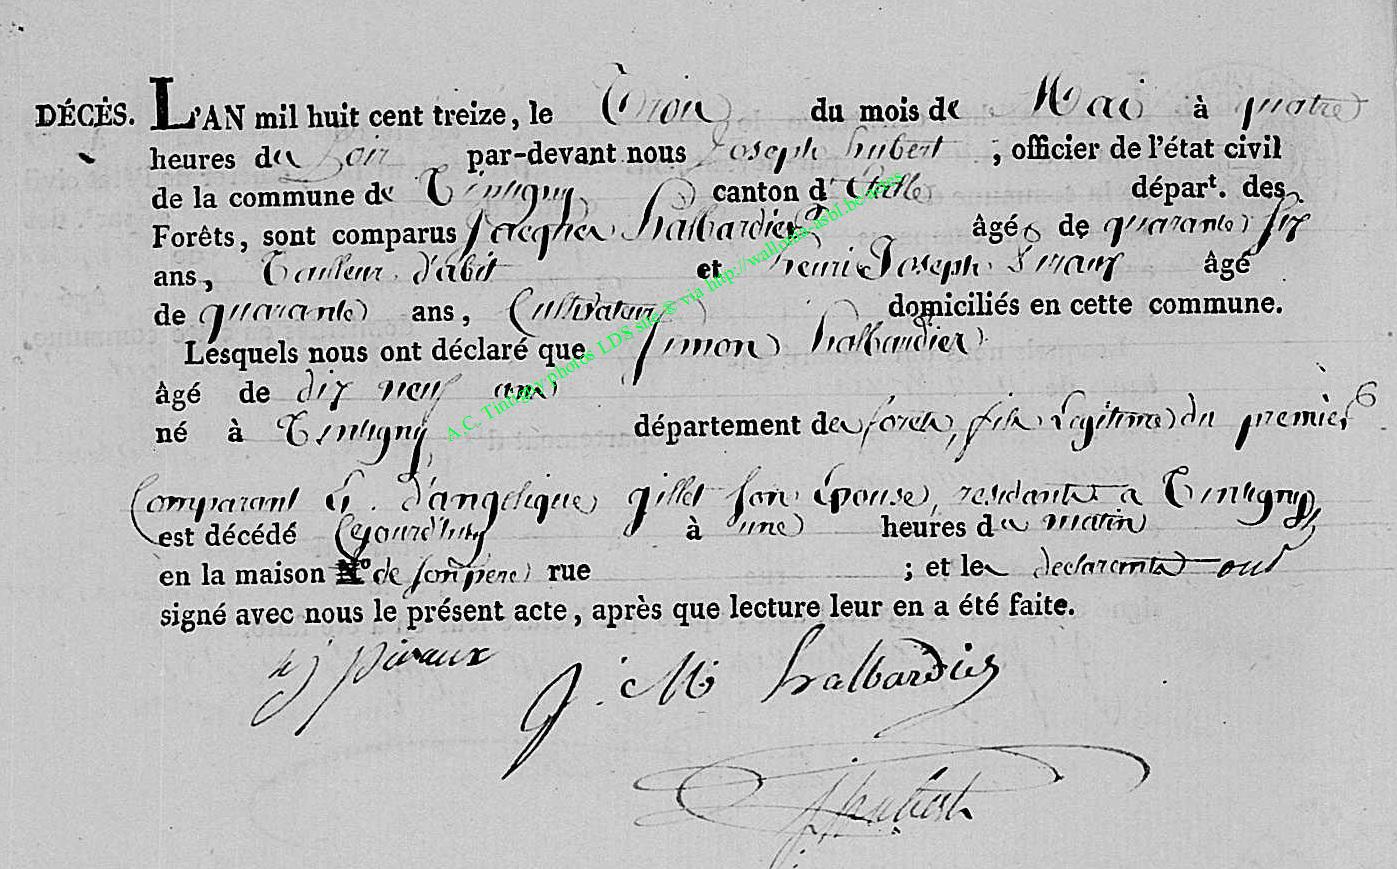 DÉCÈS. L'AN mil huit cent treize, le Trois du mois de Mai à quatre
heures du Soir par-devant nous Joseph hubert, officier de l'état civil
de la commune de Tintigny canton d'Etalle départ. des
Forêts, sont comparus Jacques halbardier âgés de quarante six
ans, Tailleur d'abit et henri Joseph âgé
de quarante ans, Cultivateur domiciliés en cette commune.
Lesquels nous ont déclaré que Simon halbardier
âgé de dix neuf ans
né à Tintigny département des forets, fils Legitime du premier
Comparant et d'angelique gillet son épouse, residante a Tintigny,
est décédé Cejourd'huy à une heures du matin
en la maison N.º de son pere rue ; et les declarants ont
signé avec nous le présent acte, après que lecture leur en a été faite.
h j
J. M halbardier
J hubert
A.C. Tintigny photos LDS site © via http://wallonia-asbl.be/actes